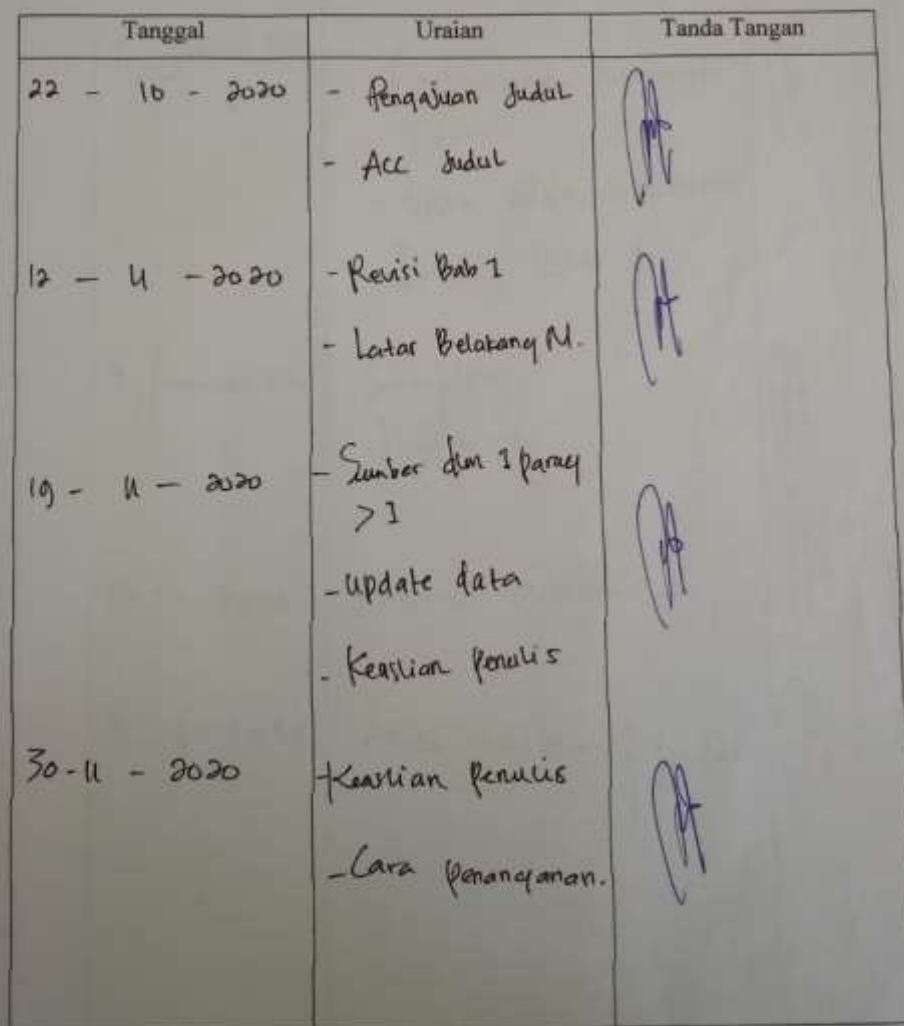 Tanggal Uraian Tanda Tangan
22 - 10 - 2020 - Pengajuan Judul
- Acc Judul
12 - 11 - 2020 - Revisi Bab 1
- Latar Belakang M.
19 - 11 - 2020 - Sumber dlm 1 parag
> 1
- update data
- Keaslian Penulis
30 - 11 - 2020 - Keaslian Penulis
- Cara penanganan.